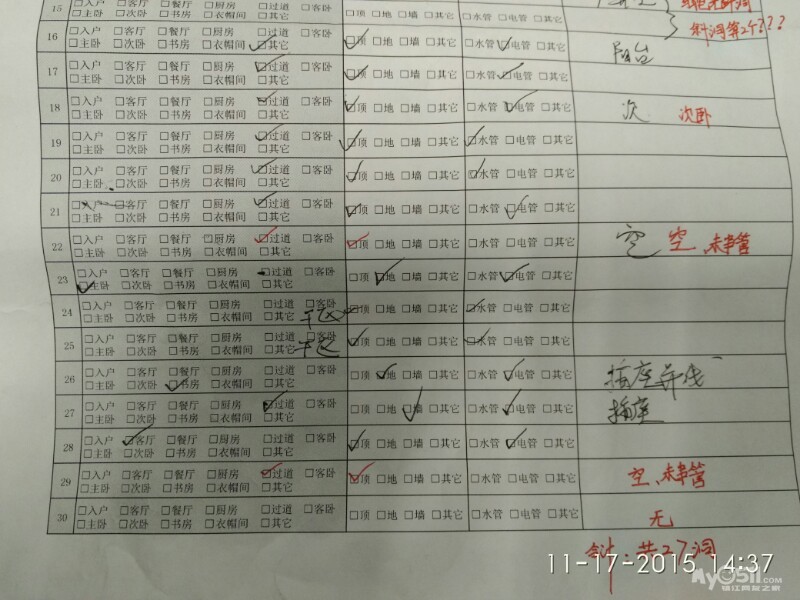 15 □主卧 □次卧 □书房 □衣帽间 □其它 □顶 □地 □墙 □其它 □水管 □电管 □其它
斜洞算2个???
16 □入户 □客厅 □餐厅 □厨房 □过道 □客卧
□主卧 □次卧 □书房 □衣帽间 □其它 ☑顶 □地 □墙 □其它 □水管 ☑电管 □其它 阳台
17 □入户 □客厅 □餐厅 □厨房 ☑过道 □客卧
□主卧 □次卧 □书房 □衣帽间 □其它 ☑顶 □地 □墙 □其它 □水管 ☑电管 □其它
18 □入户 □客厅 □餐厅 □厨房 ☑过道 □客卧
□主卧 □次卧 □书房 □衣帽间 □其它 ☑顶 □地 □墙 □其它 □水管 ☑电管 □其它 次 次卧
19 □入户 □客厅 □餐厅 □厨房 ☑过道 □客卧
□主卧 □次卧 □书房 □衣帽间 □其它 ☑顶 □地 □墙 □其它 ☑水管 □电管 □其它
20 □入户 □客厅 □餐厅 □厨房 ☑过道 □客卧
□主卧 □次卧 □书房 □衣帽间 □其它 ☑顶 □地 □墙 □其它 ☑水管 □电管 □其它
21 □入户 □客厅 □餐厅 □厨房 ☑过道 □客卧
□主卧 □次卧 □书房 □衣帽间 □其它 ☑顶 □地 □墙 □其它 □水管 ☑电管 □其它
22 □入户 □客厅 □餐厅 □厨房 ☑过道 □客卧
□主卧 □次卧 □书房 □衣帽间 □其它 ☑顶 □地 □墙 □其它 □水管 □电管 □其它 空 空、未串管
23 □入户 □客厅 □餐厅 □厨房 □过道 □客卧
☑主卧 □次卧 □书房 □衣帽间 □其它 □顶 ☑地 □墙 □其它 □水管 ☑电管 □其它
24 □入户 □客厅 □餐厅 □厨房 □过道 □客卧
□主卧 □次卧 □书房 □衣帽间 □其它 干区 ☑顶 □地 □墙 □其它 ☑水管 □电管 □其它
25 □入户 □客厅 □餐厅 □厨房 □过道 □客卧
□主卧 □次卧 □书房 □衣帽间 □其它 干区 ☑顶 □地 □墙 □其它 ☑水管 □电管 □其它
26 □入户 □客厅 □餐厅 □厨房 □过道 □客卧
□主卧 □次卧 ☑书房 □衣帽间 □其它 □顶 ☑地 □墙 □其它 □水管 ☑电管 □其它 插座
27 □入户 □客厅 □餐厅 □厨房 ☑过道 □客卧
□主卧 □次卧 □书房 □衣帽间 □其它 □顶 □地 ☑墙 □其它 □水管 ☑电管 □其它 插座
28 □入户 ☑客厅 □餐厅 □厨房 □过道 □客卧
□主卧 □次卧 □书房 □衣帽间 □其它 ☑顶 □地 □墙 □其它 □水管 ☑电管 □其它
29 □入户 □客厅 □餐厅 □厨房 ☑过道 □客卧
□主卧 □次卧 □书房 □衣帽间 □其它 ☑顶 □地 □墙 □其它 □水管 □电管 □其它 空、未串管
30 □入户 □客厅 □餐厅 □厨房 □过道 □客卧
□主卧 □次卧 □书房 □衣帽间 □其它 □顶 □地 □墙 □其它 □水管 □电管 □其它 无
合计:共27洞
11-17-2015 14:37
my0511.com
镇江网友之家